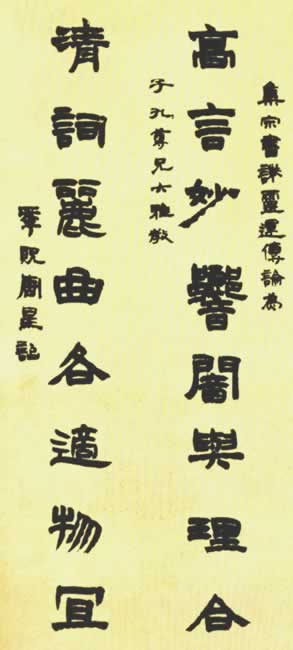 集宋書謝靈運傳論為
高言妙響闇與理合
子孔尊兄大雅教
清詞麗曲各適物宜
季貺周星詒